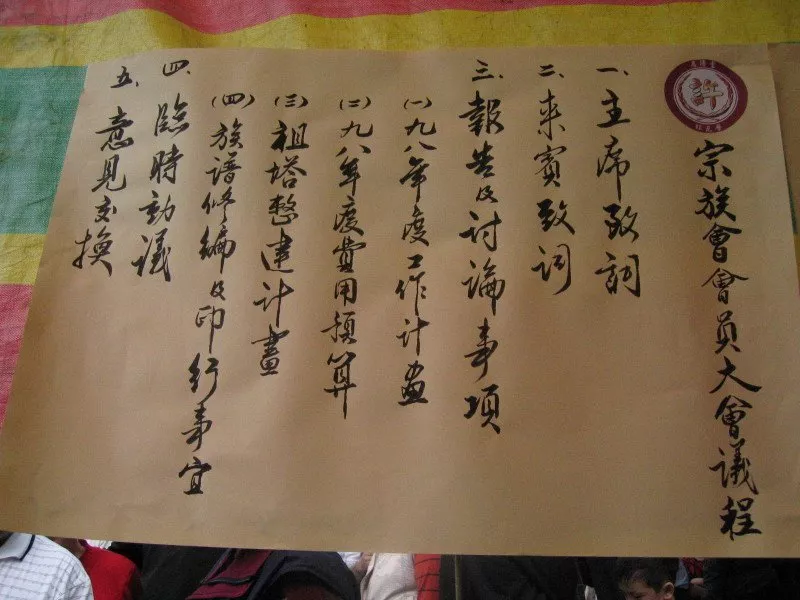 許
宗族會會員大會議程
一、主席致詞
二、來賓致詞
三、報告及討論事項
(一)九八年度工作計畫
(二)九八年度費用預算
(三)祖塔整建計畫
(四)族譜修編及印行事宜
四、臨時動議
五、意見交換